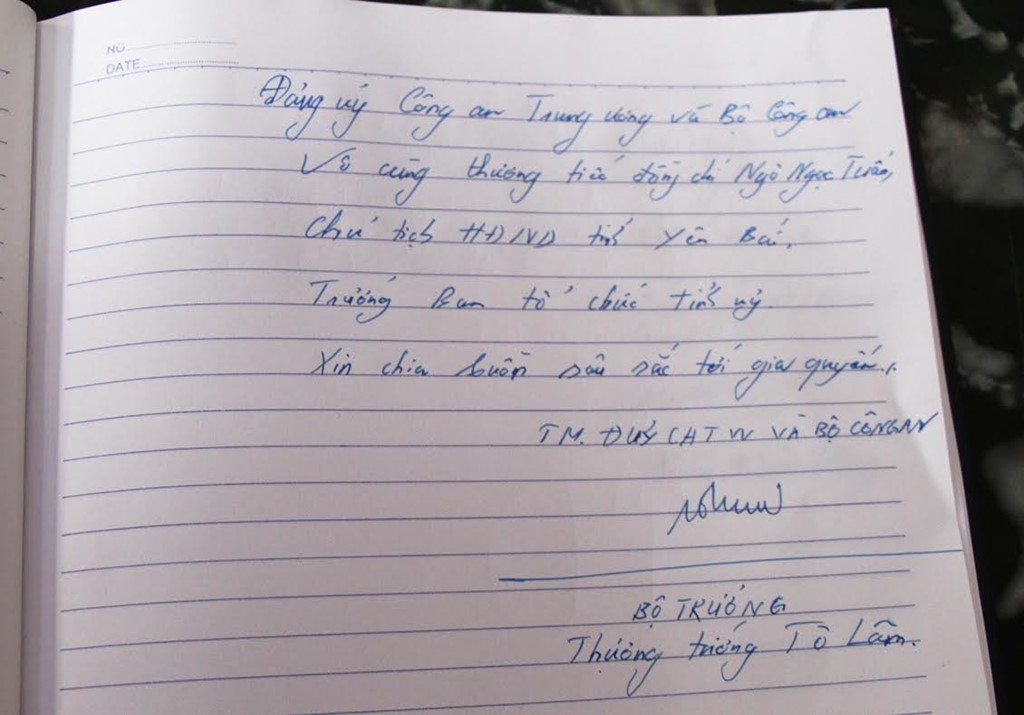 NO
DATE
Đảng uỷ Công an Trung ương và Bộ Công an
Vô cùng thương tiếc đồng chí Ngô Ngọc Tuấn,
Chủ tịch HĐND tỉnh Yên Bái,
Trưởng Ban tổ chức tỉnh uỷ.
Xin chia buồn sâu sắc tới gia quyến./.
TM. ĐUỶ CATW VÀ BỘ CÔNG AN
BỘ TRƯỞNG
Thượng tướng Tô Lâm.